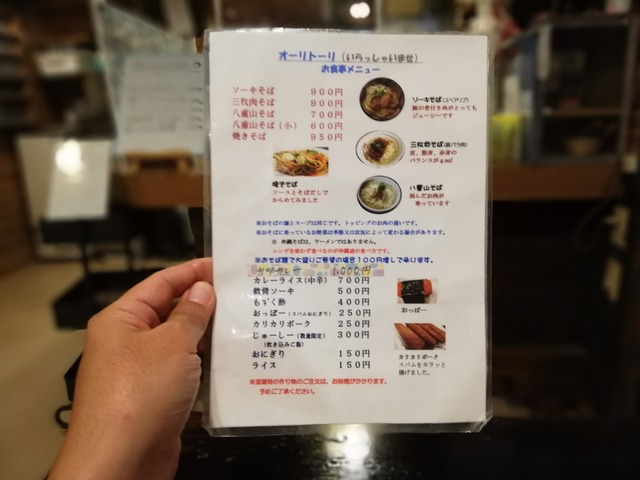 オーリトーリ(いらっしゃいませ)
お食事メニュー
ソーキそば 900円
三枚肉そば 900円
八重山そば 700円
八重山そば(小) 600円
焼きそば 950円
ソーキそば(スペアリブ)
豚の骨付き肉がとっても
ジューシーです
三枚肉そば(豚バラ肉)
皮、脂身、赤身の
バランスがgood
八重山そば
刻んだお肉が
乗っています
焼きそば
ソースとそばだしで
からめてみました
※おそばの麺とスープは同じです。トッピングのお肉の違いです。
※おそばに乗っているお野菜は季節又は状況によって変わる場合があります。
※ 沖縄そばは、ラーメンではありません。
レンゲを使わず食べるのが沖縄流の食べ方です。
※おそば麺で大盛りご希望の場合100円増しで承ります。
1,000円
カレーライス(中辛) 700円
軟骨ソーキ 500円
もずく酢 400円
おっぱー(スパムおにぎり) 250円
カリカリポーク 250円
じゅーしー(数量限定) 300円
(炊き込みご飯)
おにぎり 150円
ライス 150円
おっぱー
カリカリポーク
スパムをカラッと
揚げました。
※混雑時の作り物のご注文は、お時間がかかります。
予めご了承ください。